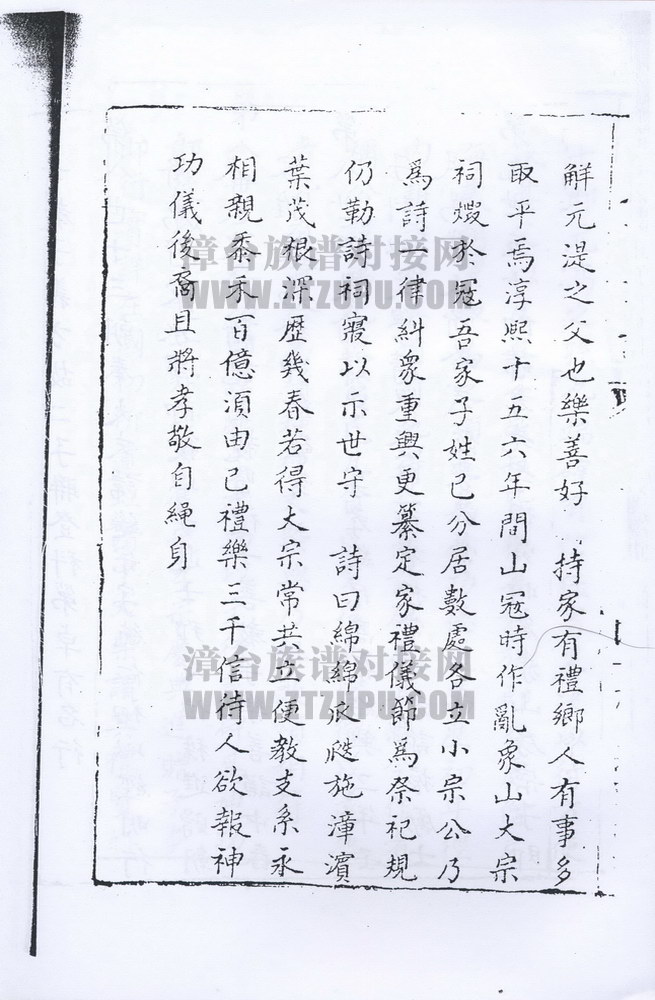 解元湜之父也樂善好 持家有禮鄉人有事多
取平焉淳熙十五六年間山冠時作亂象山大宗
祠燬於冠吾家子姓已分居數處各立小宗公乃
爲詩一律糾衆重興更纂定家禮儀節爲祭祀規
仍勒詩祠寢以示世守 詩曰綿綿瓜瓞施漳濱
葉茂根深歷幾春若得大宗常共立便教支系永
相親黍禾百億須由己禮樂三千信待人欲報神
功儀後裔且將孝敬自繩身
漳台族谱对接网
WWW.ZTZUPU.COM
漳台族谱对接网
WWW.ZTZUPU.COM